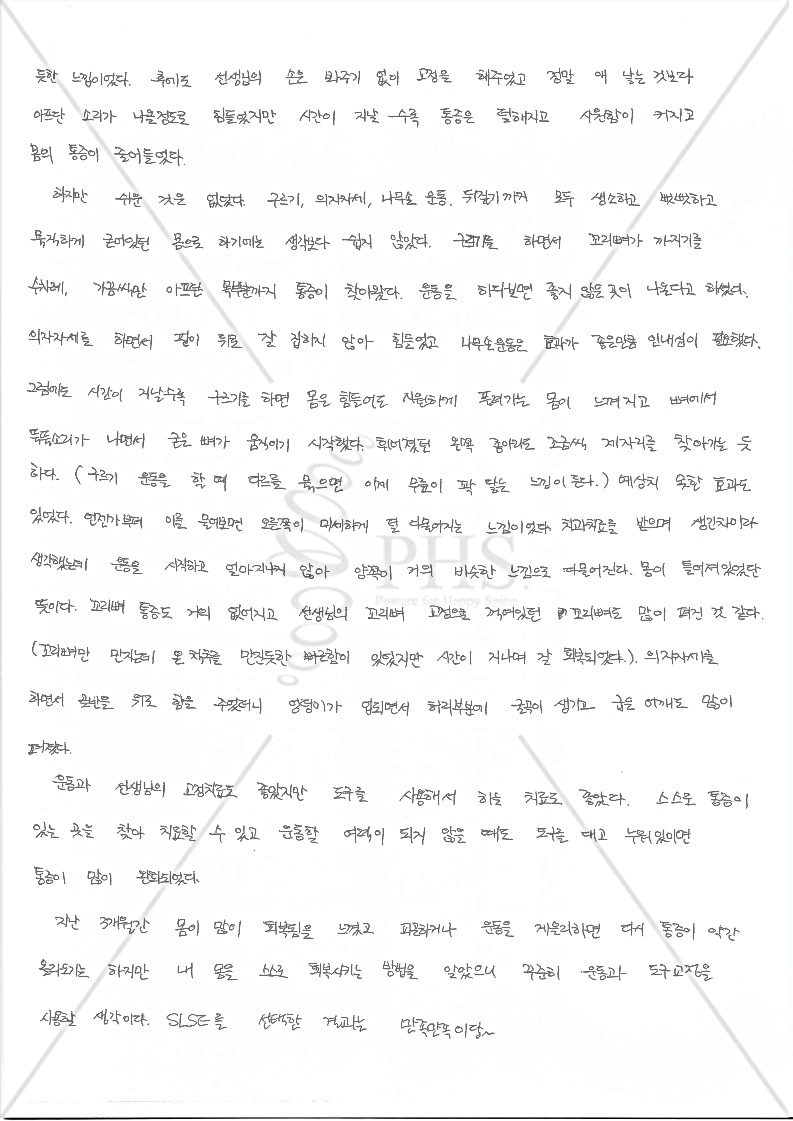 듯한 느낌이었다. 후에도 선생님의 손은 봐주기 없이 교정을 해주었고 정말 애 낳는 것보다
아프단 소리가 나올정도로 힘들었지만 시간이 지날 수록 통증은 덜해지고 시원함이 커지고
몸의 통증이 줄어들었다.
하지만 쉬운 것은 없었다. 구르기, 의자자세, 나무손 운동, 뒤집기까지 모두 생소하고 뻣뻣하고
묵직하게 굳어있던 몸으로 하기에는 생각보다 쉽지 않았다. 구르기를 하면서 꼬리뼈가 까지기를
수차례, 가끔씩만 아프던 목부분까지 통증이 찾아왔다. 운동을 하다보면 좋지 않은 곳이 나온다고 하였다.
의자자세를 하면서 팔이 뒤로 잘 접히지 않아 힘들었고 나무손운동은 효과가 좋은만큼 인내심이 필요했다.
그럼에도 시간이 지날수록 구르기를 하면 몸은 힘들어도 시원하게 풀려가는 몸이 느껴지고 뼈에서
뚝뚝소리가 나면서 굳은 뼈가 움직이기 시작했다. 휘어졌던 왼쪽 종아리도 조금씩 제자리를 찾아가는 듯
하다. (구르기 운동을 할 때 다리를 묶으면 이제 무릎이 꽉 닿는 느낌이 든다.) 예상치 못한 효과도
있었다. 언젠가부터 이를 물어보면 오른쪽이 미세하게 덜 다물어지는 느낌이었다 치과치료를 받으며 생긴차이라
생각했는데 운동을 시작하고 얼마지나지 않아 양쪽이 거의 비슷한 느낌으로 다물어진다. 몸이 틀어져있었단
뜻이다. 꼬리뼈 통증도 거의 없어지고 선생님의 꼬리뼈 교정으로 꺾여있던 꼬리뼈도 많이 펴진 것 같다.
(꼬리뼈만 만지는데 온 척추를 만진듯한 뻐근함이 있었지만 시간이 지나며 잘 회복되었다.). 의자자세를
하면서 골반을 위로 힘을 주었더니 엉덩이가 업되면서 허리부분에 굴곡이 생기고 굽은 어깨도 많이
펴졌다.
운동과 선생님의 교정치료도 좋았지만 도구를 사용해서 하는 치료도 좋았다. 스스로 통증이
있는 곳을 찾아 치료할 수 있고 운동할 여력이 되지 않을 때도 도구를 대고 누워있으면
통증이 많이 완화되었다.
지난 3개월간 몸이 많이 회복됨을 느꼈고 피곤하거나 운동을 게을리하면 다시 통증이 약간
올라오기는 하지만 내 몸을 스스로 회복시키는 방법을 알았으니 꾸준히 운동과 도구교정을
사용할 생각이다. SLSE를 선택한 결과는 만족만족이당~
PHS.
Posture for Happy Spine